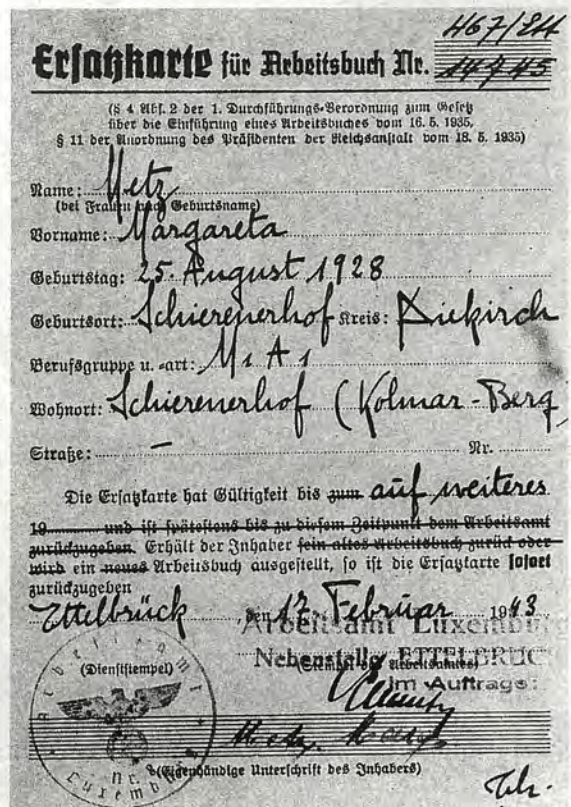 467/
Ersatzkarte für Arbeitsbuch Nr. 14745
(§ 4 Abs. 2 der 1. Durchführungs-Verordnung zum Gesetz
über die Einführung eines Arbeitsbuches vom 16. 5. 1935,
§ 11 der Anordnung des Präsidenten der Reichsanstalt vom 18. 5. 1935)
Name: Metz
(bei Frauen auch Geburtsname)
Vorname: Margareta
Geburtstag: 25. August 1928
Geburtsort: Schierenerhof Kreis: Diekirch
Berufsgruppe u. -art: M1 A1
Wohnort: Schierenerhof (Kolmar-Berg
Straße: — Nr.
Die Ersatzkarte hat Gültigkeit bis zum auf weiteres
19 und ist spätestens bis zu diesem Zeitpunkt dem Arbeitsamt
zurückzugeben. Erhält der Inhaber sein altes Arbeitsbuch zurück oder
wird ein neues Arbeitsbuch ausgestellt, so ist die Ersatzkarte sofort
zurückzugeben
Ettelbrück, den 17. Februar 1943
Arbeitsamt Luxemburg
Nebenstelle ETTELBRÜCK
(Dienststempel) (Stempel des Arbeitsamtes)
Im Auftrage:
Arbeitsamt
Luxemburg
Nr.
Metz. Marg.
(Eigenhändige Unterschrift des Inhabers)